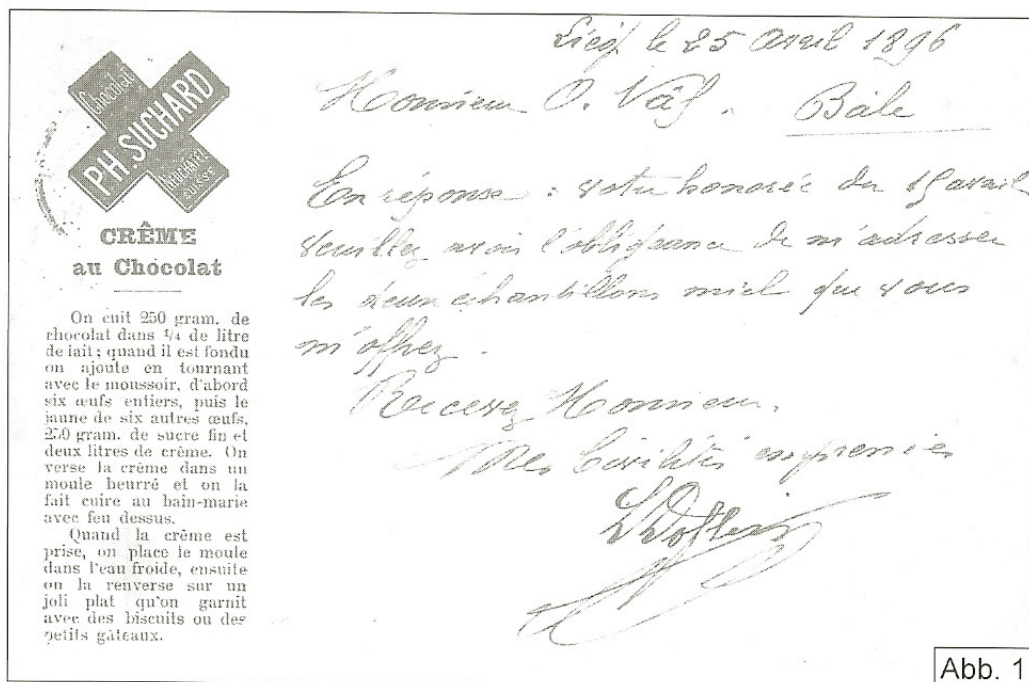 Chocolat
PH. SUCHARD
Neuchâtel
Suisse
CRÊME
au Chocolat
On cuit 250 gram. de
chocolat dans 1/4 de litre
de lait; quand il est fondu
on ajoute en tournant
avec le moussoir, d'abord
six œufs entiers, puis le
jaune de six autres œufs,
250 gram. de sucre fin et
deux litres de crême. On
verse la crême dans un
moule beurré et on la
fait cuire au bain-marie
avec feu dessus.
Quand la crême est
prise, on place le moule
dans l'eau froide, ensuite
on la renverse sur un
joli plat qu'on garnit
avec des biscuits ou des
petits gâteaux.
le 25 Avril 1896
Monsieur O. Bâle
En réponse : votre honorée du avril
veuillez avoir l'obligeance de m'adresser
les deux échantillons miel que vous
m'offrez.
Recevez Monsieur,
Mes Civilités empressées
Abb. 1